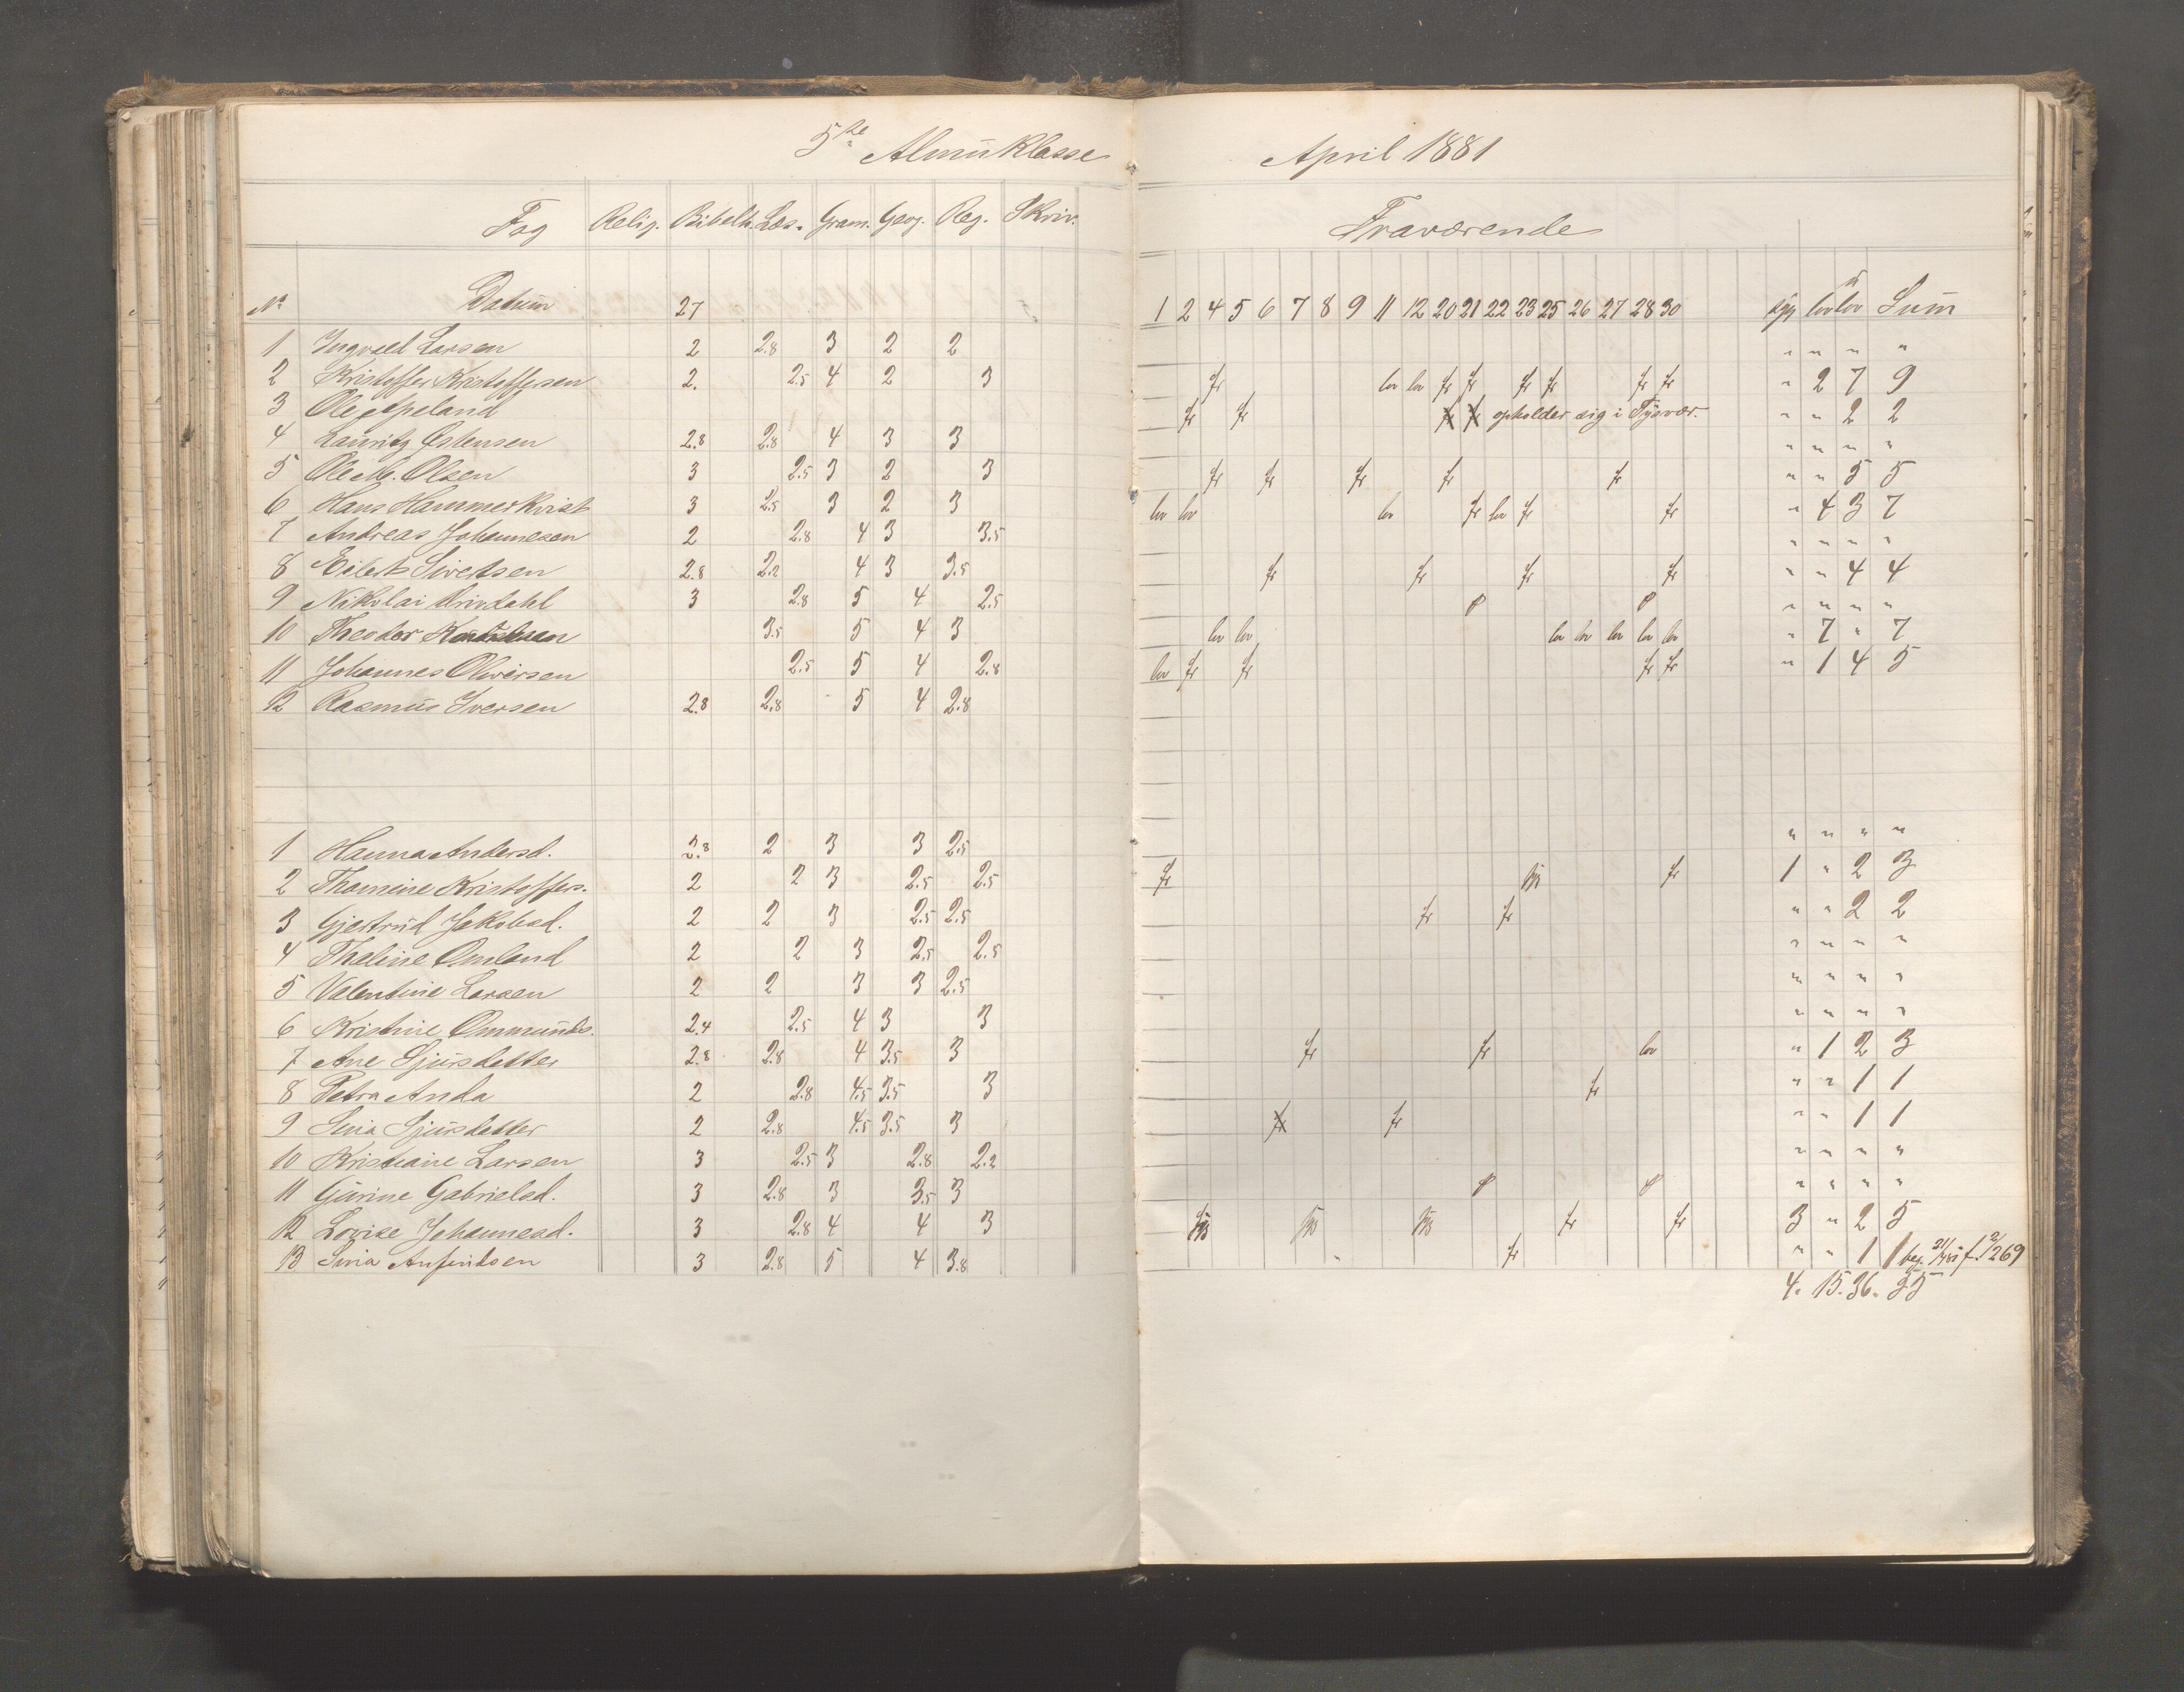 5te Almuklasse
April 1881
Fag Relig. Bibelh. Læs. Gram. Geog. Reg. Skriv.
Fraværende
No Datum 27
1 2 4 5 6 7 8 9 11 12 20 21 22 23 25 26 27 28 30 syg lov u lov Sum
1 Ingvald Larsen 2 2.8 3 2 2 " " " "
2 Kristoffer Kristoffersen 2. 2.5 4 2 3 fr lov lov fr fr fr fr fr fr " 2 7 9
3 Ole Apeland fr fr fr fr opholder sig i Tysvær. " " 2 2
4 Lauritz Østensen 2.8 2.8 4 3 3 " " " "
5 Ole M. Olsen 3 2.5 3 2 3 fr fr fr fr fr " " 5 5
6 Hans Hammerkvist 3 2.5 3 2 3 lov lov lov fr lov fr fr " 4 3 7
7 Andreas Johannesen 2 2.8 4 3 3.5 " " " "
8 Eilert Sivertsen 2.8 2.2 4 3 3.5 fr fr fr fr " " 4 4
9 Nikolai 3 2.8 5 4 2.5 " " " "
10 Theodor 3.5 5 4 3 lov lov lov lov lov lov lov " 7 " 7
11 Johannes Oliversen 2.5 5 4 2.8 lov fr fr fr fr " 1 4 5
12 Rasmus Iversen 2.8 2.8 5 4 2.8
1 Hanna Andersd. 2.8 2 3 3 2.5 " " " "
2 Thomine Kristoffers. 2 2 3 2.5 2.5 fr syg fr 1 " 2 3
3 Gjertrud Jakobsd. 2 2 3 2.5 2.5 fr fr " " 2 2
4 Theline Omland 2 2 3 2.5 2.5 " " " "
5 Valentine Larsen 2 2 3 3 2.5 " " " "
6 Kristine Ommunds. 2.4 2.5 4 3 3 " " " "
7 Ane Sjursdatter 2.8 2.8 4 3.5 3 fr fr lov " 1 2 3
8 Petra Anda 2 2.8 4.5 3.5 3 fr " " 1 1
9 Sina Sjursdatter 2 2.8 4.5 3.5 3 fr fr " " 1 1
10 Kristiane Larsen 3 2.5 3 2.8 2.2 " " " "
11 Gurine Gabrielsd. 3 2.8 3 3.5 3 " " " "
12 Lovise Johannesd. 3 2.8 4 4 3 syg syg syg fr fr 3 " 2 5
13 Sina Anfindsen 3 2.8 5 4 3.8 fr " " 1 1
4. 15. 36. 55